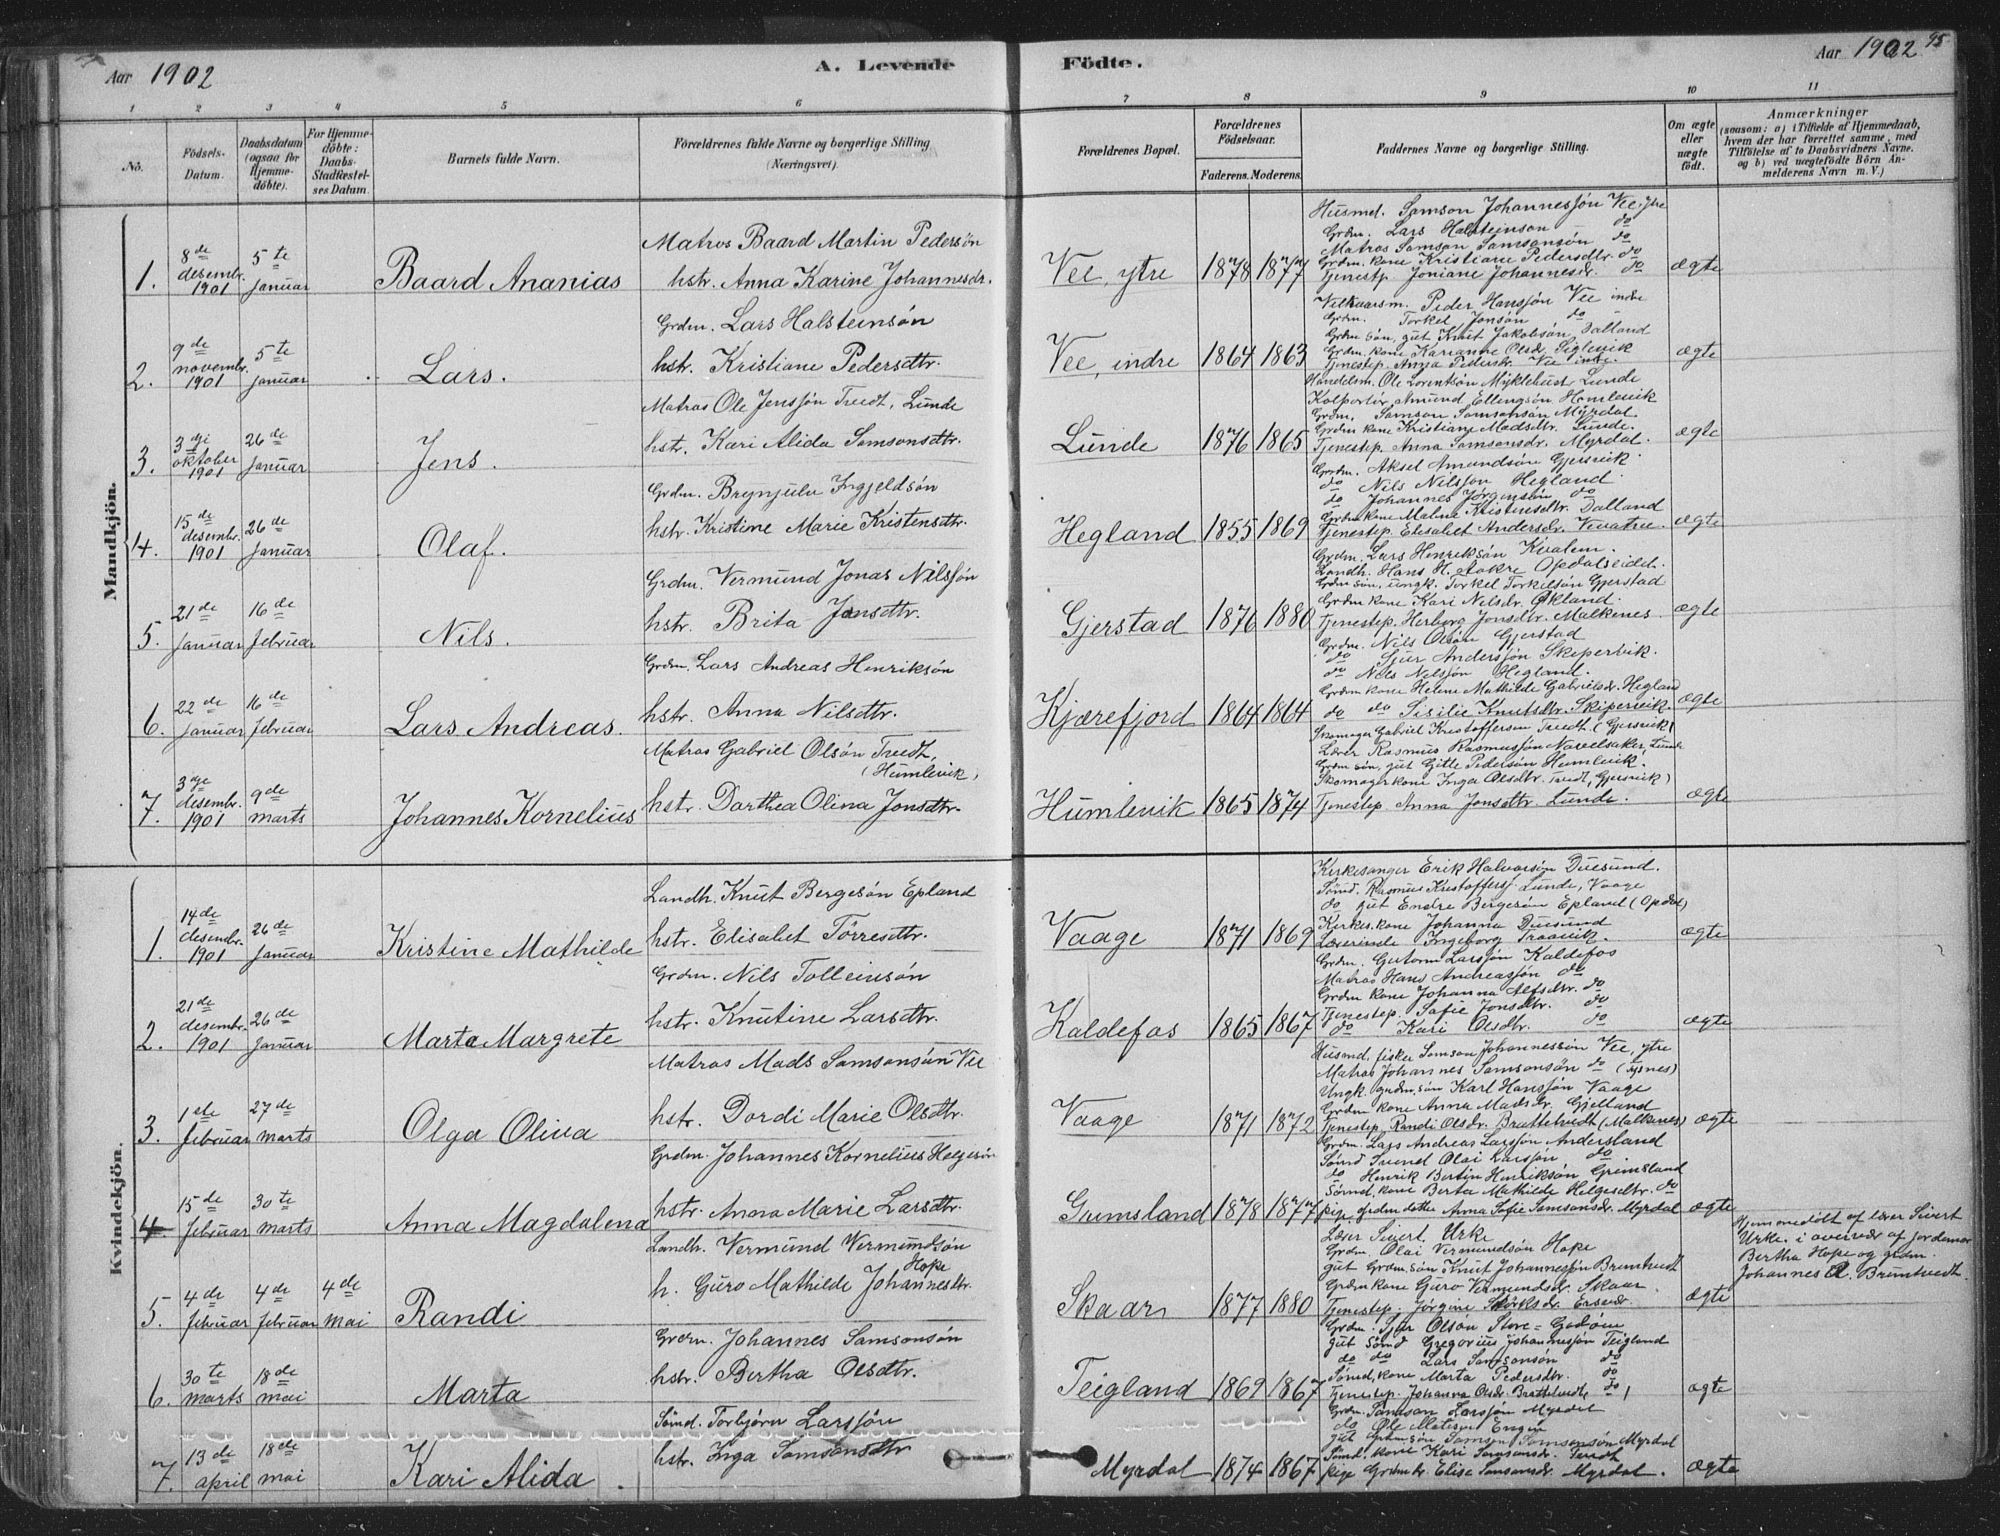 Aar 1902
A. Levende Födte.
Aar 1902 95
1 2 3 4 5 6 7 8 9 10 11
No.
Födsels-Datum.
Daabsdatum (ogsaa for Hjemmedöbte).
For Hjemmedöbte: Daabs-Stadfæstelses Datum.
Barnets fulde Navn.
Forældrenes fulde Navne og borgerlige Stilling (Næringsvei).
Forældrenes Bopæl.
Forældrenes Födselsaar. Faderens. Moderens.
Faddernes Navne og borgerlige Stilling.
Om ægte eller uægte födt.
Anmærkninger
(saasom: a) i Tilfælde af Hjemmedaab, hvem der har forrettet samme, med Tilföielse af to Daabsvidners Navne. og b) ved uægtefödte Börn Anmelderens Navn m. V.)
Mandkjön.
1. 8de desembr. 1901 5te januar Baard Ananias
Matros Baard Martin Pedersön
hstr. Anna Karine Johannesdr.
Vee, ytre 1878 1877
Husmd. Samson Johannesjön Vee, ytre
Grdm. Lars Halsteinson do
Matros Samson Samsonsön do
Grdm. kone Kristiane Pedersdtr. do
Tjenestep. Joniane Johannesdr. do
ægte
2. 9de novembr. 1901 5te januar Lars.
Grdm. Lars Halsteinsön
hstr. Kristiane Pedersdtr.
Vee, indre 1864 1863
Vilkaarsm. Peder Hansjön Vee indre
Grdm. Torkel Jonsön do
Grdm. sön, gut Knut Jakobsön, Dalland
Grdm. kone Karianne Olsdr. Siglevik
Tjenestep. Anna Pedersdr. Vee indre
ægte
3. 3dji oktober 1901 26de januar Jens.
Matros Ole Jensjön Tvedt, Lunde
hstr. Kari Alida Samsonsdtr.
Lunde 1876 1865
Handelsm. Ole Lorentsön Myklebust Lunde
Kolportör Amund Ellingsön Homlevik
Grdm. Samson Samsonsön Myrdal
Grdm kone Kristiane Madsdtr. Lunde.
Tjenestep. Anna Samsonsdr. Myrdal.
ægte
4. 15de desembr. 1901 26de januar Olaf.
Grdm. Brynjulv Ingjeldsön
hstr. Kristine Marie Kristensdtr.
Hegland 1855 1869
Grdm. Aksel Amundsön Gjersvik.
do Nils Nilsjon Hegland.
do Johannes Jörgensön do
Grdm kone Malene Kristensdtr. Dalland
Tjenestep. Elisabet Andersdr.
ægte
5. 21de januar 16de februar Nils.
Grdm. Vermund Jonas Nilsjön
hstr. Brita Jonsdtr.
Gjerstad 1876 1880
Grdm. Lars Henriksön Kvalem.
Landh. Hans H. Aakre Opdalseidet.
Grdm sön, ungk. Torkel Torkilsön Gjerstad
Grdm kone Kari Nilsdr. Økland.
Tjenestep. Herborg Jonsdtr. Malkenes
ægte
6. 22de januar 16de februar Lars Andreas.
Grdm. Lars Andreas Henriksön
hstr. Anna Nilsdtr.
Kjærefjord 1864 1864
Grdm. Nils Olsön Gjerstad
do Sjur Andersjön Skepervik.
do Nils Nilsjön Hegland.
Grdm kone Helene Mathilde Gabrielsdr. Hegland
do do Sisilie Knutsdtr. Skipervik.
ægte
7. 3dje desembr. 1901 9de marts Johannes Kornelius
Matros Gabriel Olsön Tvedt, (Humlevik)
hstr. Dorthea Olina Jonsdtr.
Humlevik 1865 1874
Skomager Gabriel Kristoffersen Tvedt (Gjersvik)
Lærer Rasmus Rasmusjön Navelsaker, Lunde
Grdm sön, gut Gitle Pedersön Humlevik.
Skomagerkone Inga Olsdtr. Tvedt, Gjersvik)
Tjenestep. Anna Jonsdtr Lunde.
ægte
Kvindekjön.
1. 14de desembr. 1901 26de januar Kristine Mathilde
Landh. Knut Bergesön Epland
hstr. Elisabet Törresdtr.
Vaage 1871 1869
Kirkesanger Erik Halvorsön Duesund.
Sömd. Rasmus Kristoffersj. Lunde, Vaage
do gut Endre Bergesön Epland (Opdal)
Kirkes. kone Johanna Duesund
Lærerinde Ingeborg Traavik.
ægte
2. 21de desembr. 1901 26de januar Marta Margrete
Grdm. Nils Tolleivsön
hstr. Knutine Larsdtr.
Kaldefos 1865 1867
Grdm. Gutorm Larsjön Kaldefos
Matros Hans Andreasjön do
Grdm kone Johanna Alfsdtr. do
Tjenestep. Sofie Jonsdtr. do
do Kari Olsdtr. do
ægte
3. 1ste februar 27de marts Olga Oliva
Matros Mads Samsonsön Vee
hstr. Dordi Marie Olsdtr.
Vaage 1871 1872
Husmd. fisker Samson Johannessön Vee, ytre
Matros Johannes Samsonsön do (Tysnes)
Ungk. grdm. sön Karl Hansjön Vaage
Grdm kone Anna Madsdr. Gjelland
Tjenestep. Randi Olsdr. Brattetvedt (Malkenes)
ægte
4. 15de februar 30te marts Anna Magdalena
Grdm. Johannes Kornelius Helgesön
hstr. Anna Marie Larsdtr.
Grimsland 1878 1877
Grdm. Lars Andreas Larsjön Andersland
Sömd Svend Olai Larsjön do.
do Henrik Bertin Henriksön Gremsland
Sömd. kone Berta Mathilde Helgesdtr. do
pige, grdm datter Anna Sofie Samsonsdr. Myrdal
ægte
5. 4de februar 4de februar 4de mai Randi
Landh. Vermund Vermundsön Hope
h. Guro Mathilde Johannesdtr.
Skaar 1877 1880
Lærer Sivert Urke
Grdm. Olai Vermundsön Hope
gut Grdm. sön Knut Johannesjön Bruntvedt
Grdm kone Guro Vermundsdr. Skaar.
Tjenestep. Jörgine
ægte
Hjemmedöbt af lærer Sivert
Urke. i overvær af jordemor
Bertha Hope og grdm.
Johannes A. Bruntvedt.
6. 30te marts 18de mai Marta
Grdm. Johannes Samsonsön
hstr. Bertha Olsdtr.
Teigland 1869 1867
Grdm. Sjur Olson Store-Godöen
gut Sömd Gregorius Johannesjön Teigland
do do Lars Samsonsön do
Sömd, kone Marta Pedersdtr. do
Tjenestep. Johanna Olsdr. Brattetvedt do
ægte
7. 13de april 18de mai Kari Alida
Sömd. Torbjörn Larsjön
hstr. Inga Samsonsdtr
Myrdal 1874 1867
Grdm. Samson Larsjön Myrdal
do Ole Engen
gut Grdmsön Samson Samsonsön Myrdal
Sömd. kone Kari Samsonsdr. Tvedt
pige Grdm dr. Elise Samsonsdr. Myrdal.
ægte